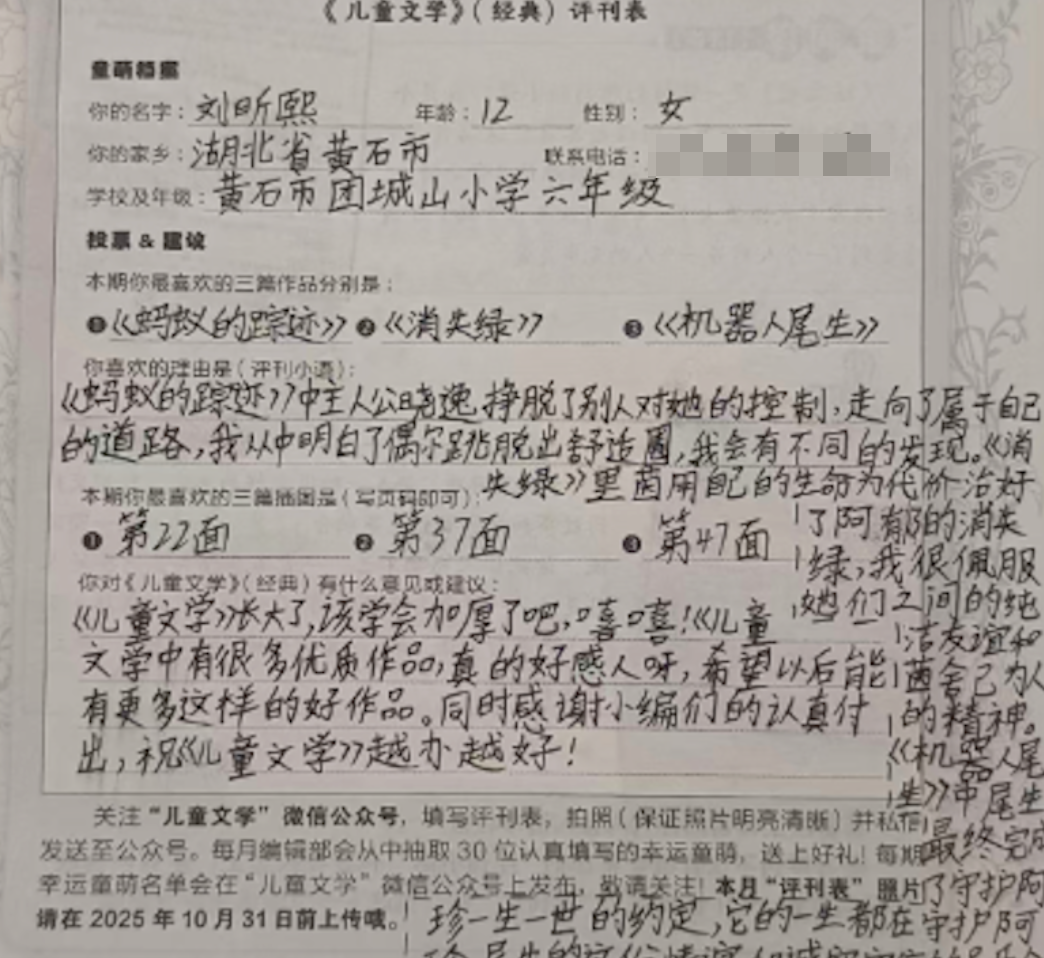 《儿童文学》（经典）评刊表
童萌档案
你的名字：刘昕熙 年龄：12 性别：女
你的家乡：湖北省黄石市 联系电话：
学校及年级：黄石市团城山小学六年级
投票 & 建议
本期你最喜欢的三篇作品分别是：
❶《蚂蚁的踪迹》 ❷《消失绿》 ❸《机器人尾生》
你喜欢的理由是（评刊小语）：
《蚂蚁的踪迹》中主人公晓逸挣脱了别人对她的控制，走向了属于自己
的道路，我从中明白了偶尔跳脱出舒适圈，我会有不同的发现。《消
失绿》里茵用自己的生命为代价治好
了阿郁的消失
绿，我很佩服
她们之间的纯
洁友谊和
茵舍己为人
的精神。
《机器人尾
生》中尾生
最终完成
了守护阿
珍一生一世的约定，它的一生都在守护阿
本期你最喜欢的三篇插图是（写页码即可）：
❶ 第22面 ❷ 第37面 ❸ 第47面
你对《儿童文学》（经典）有什么意见或建议：
《儿童文学》长大了，该学会加厚了吧，嘻嘻！《儿童
文学中有很多优质作品，真的好感人呀，希望以后能
有更多这样的好作品。同时感谢小编们的认真付
出，祝《儿童文学》越办越好！
关注“儿童文学”微信公众号，填写评刊表，拍照（保证照片明亮清晰）并私信
发送至公众号。每月编辑部会从中抽取 30 位认真填写的幸运童萌，送上好礼！每期
幸运童萌名单会在“儿童文学”微信公众号上发布，敬请关注！本月“评刊表”照片
请在 2025 年 10 月 31 日前上传哦。